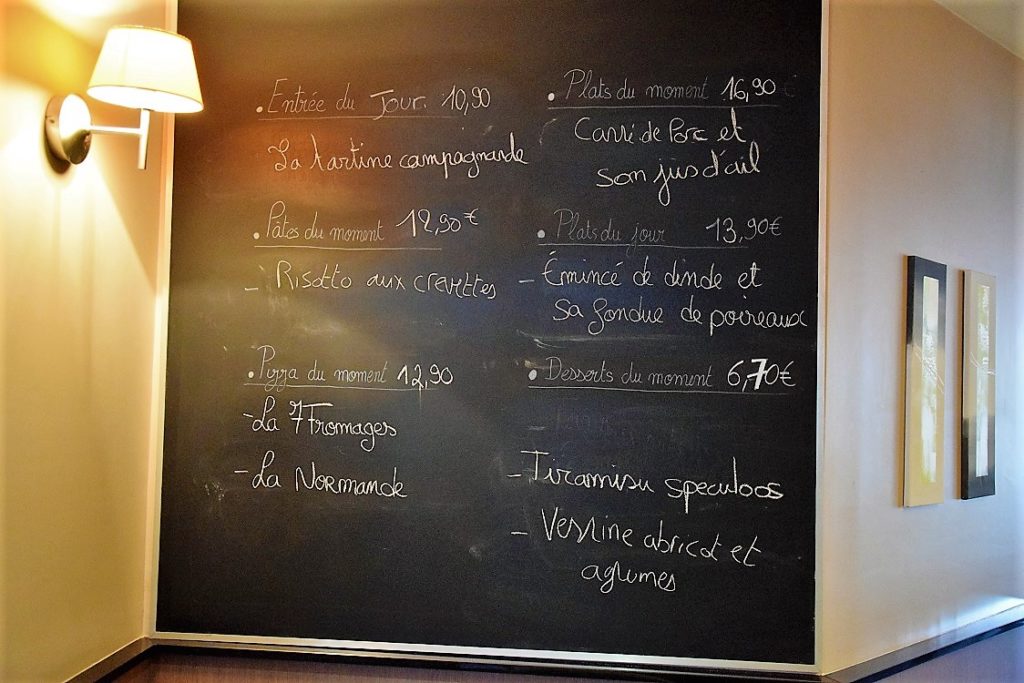 • Entrée du Jour. 10,90
La tartine campagnarde
• Pâtes du moment 12,90€
- Risotto aux crevettes
• Pizza du moment 12,90
- La 7 Fromages
- La Normande
• Plats du moment 16,90€
Carré de Porc et
son jus d'ail
• Plats du jour 13,90€
- Émincé de dinde et
sa fondue de poireaux
• Desserts du moment 6,70€
- Tiramisu speculoos
- Verrine abricot et
agrumes